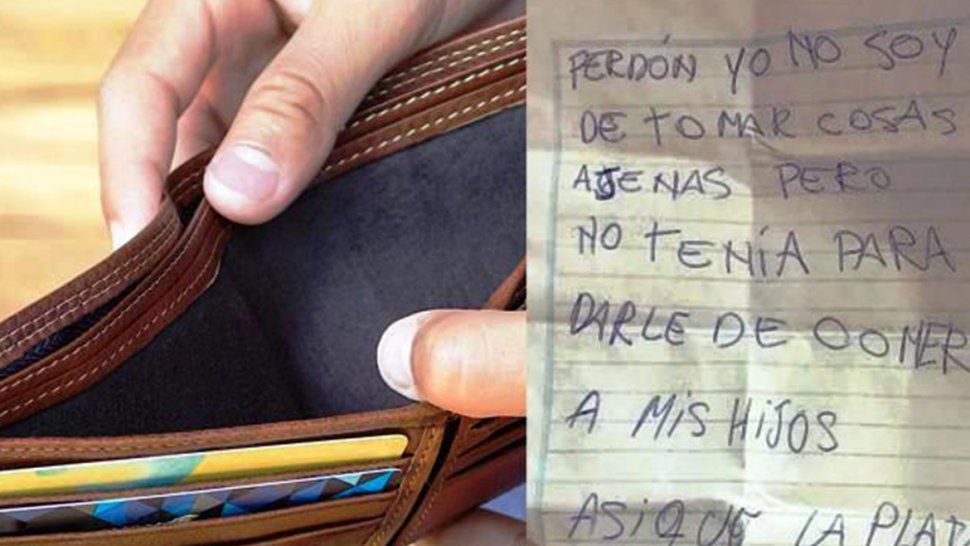 PERDÓN YO NO SOY
DE TOMAR COSAS
AJENAS PERO
NO TENÍA PARA
DARLE DE COMER
A MIS HIJOS
ASIQUE LA PLATA